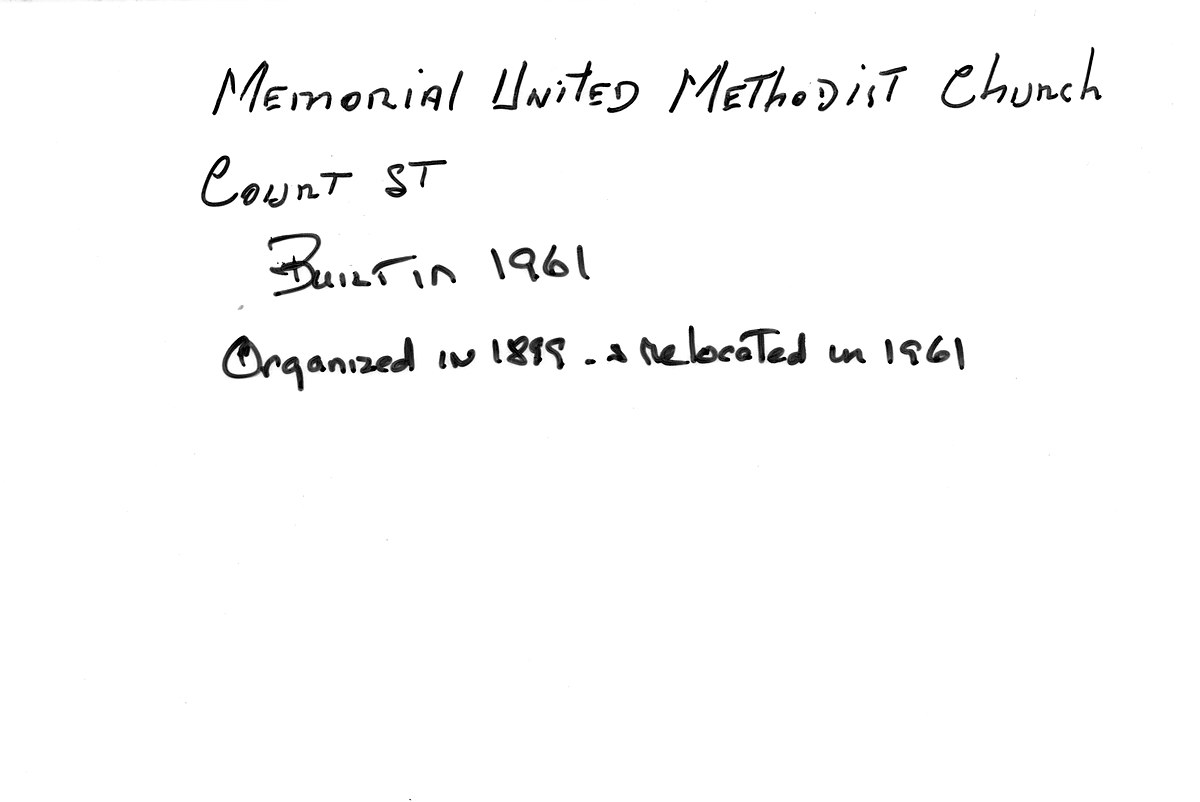 Memorial United Methodist Church
Court ST
Built in 1961
Organized in 1899 - & Relocated in 1961